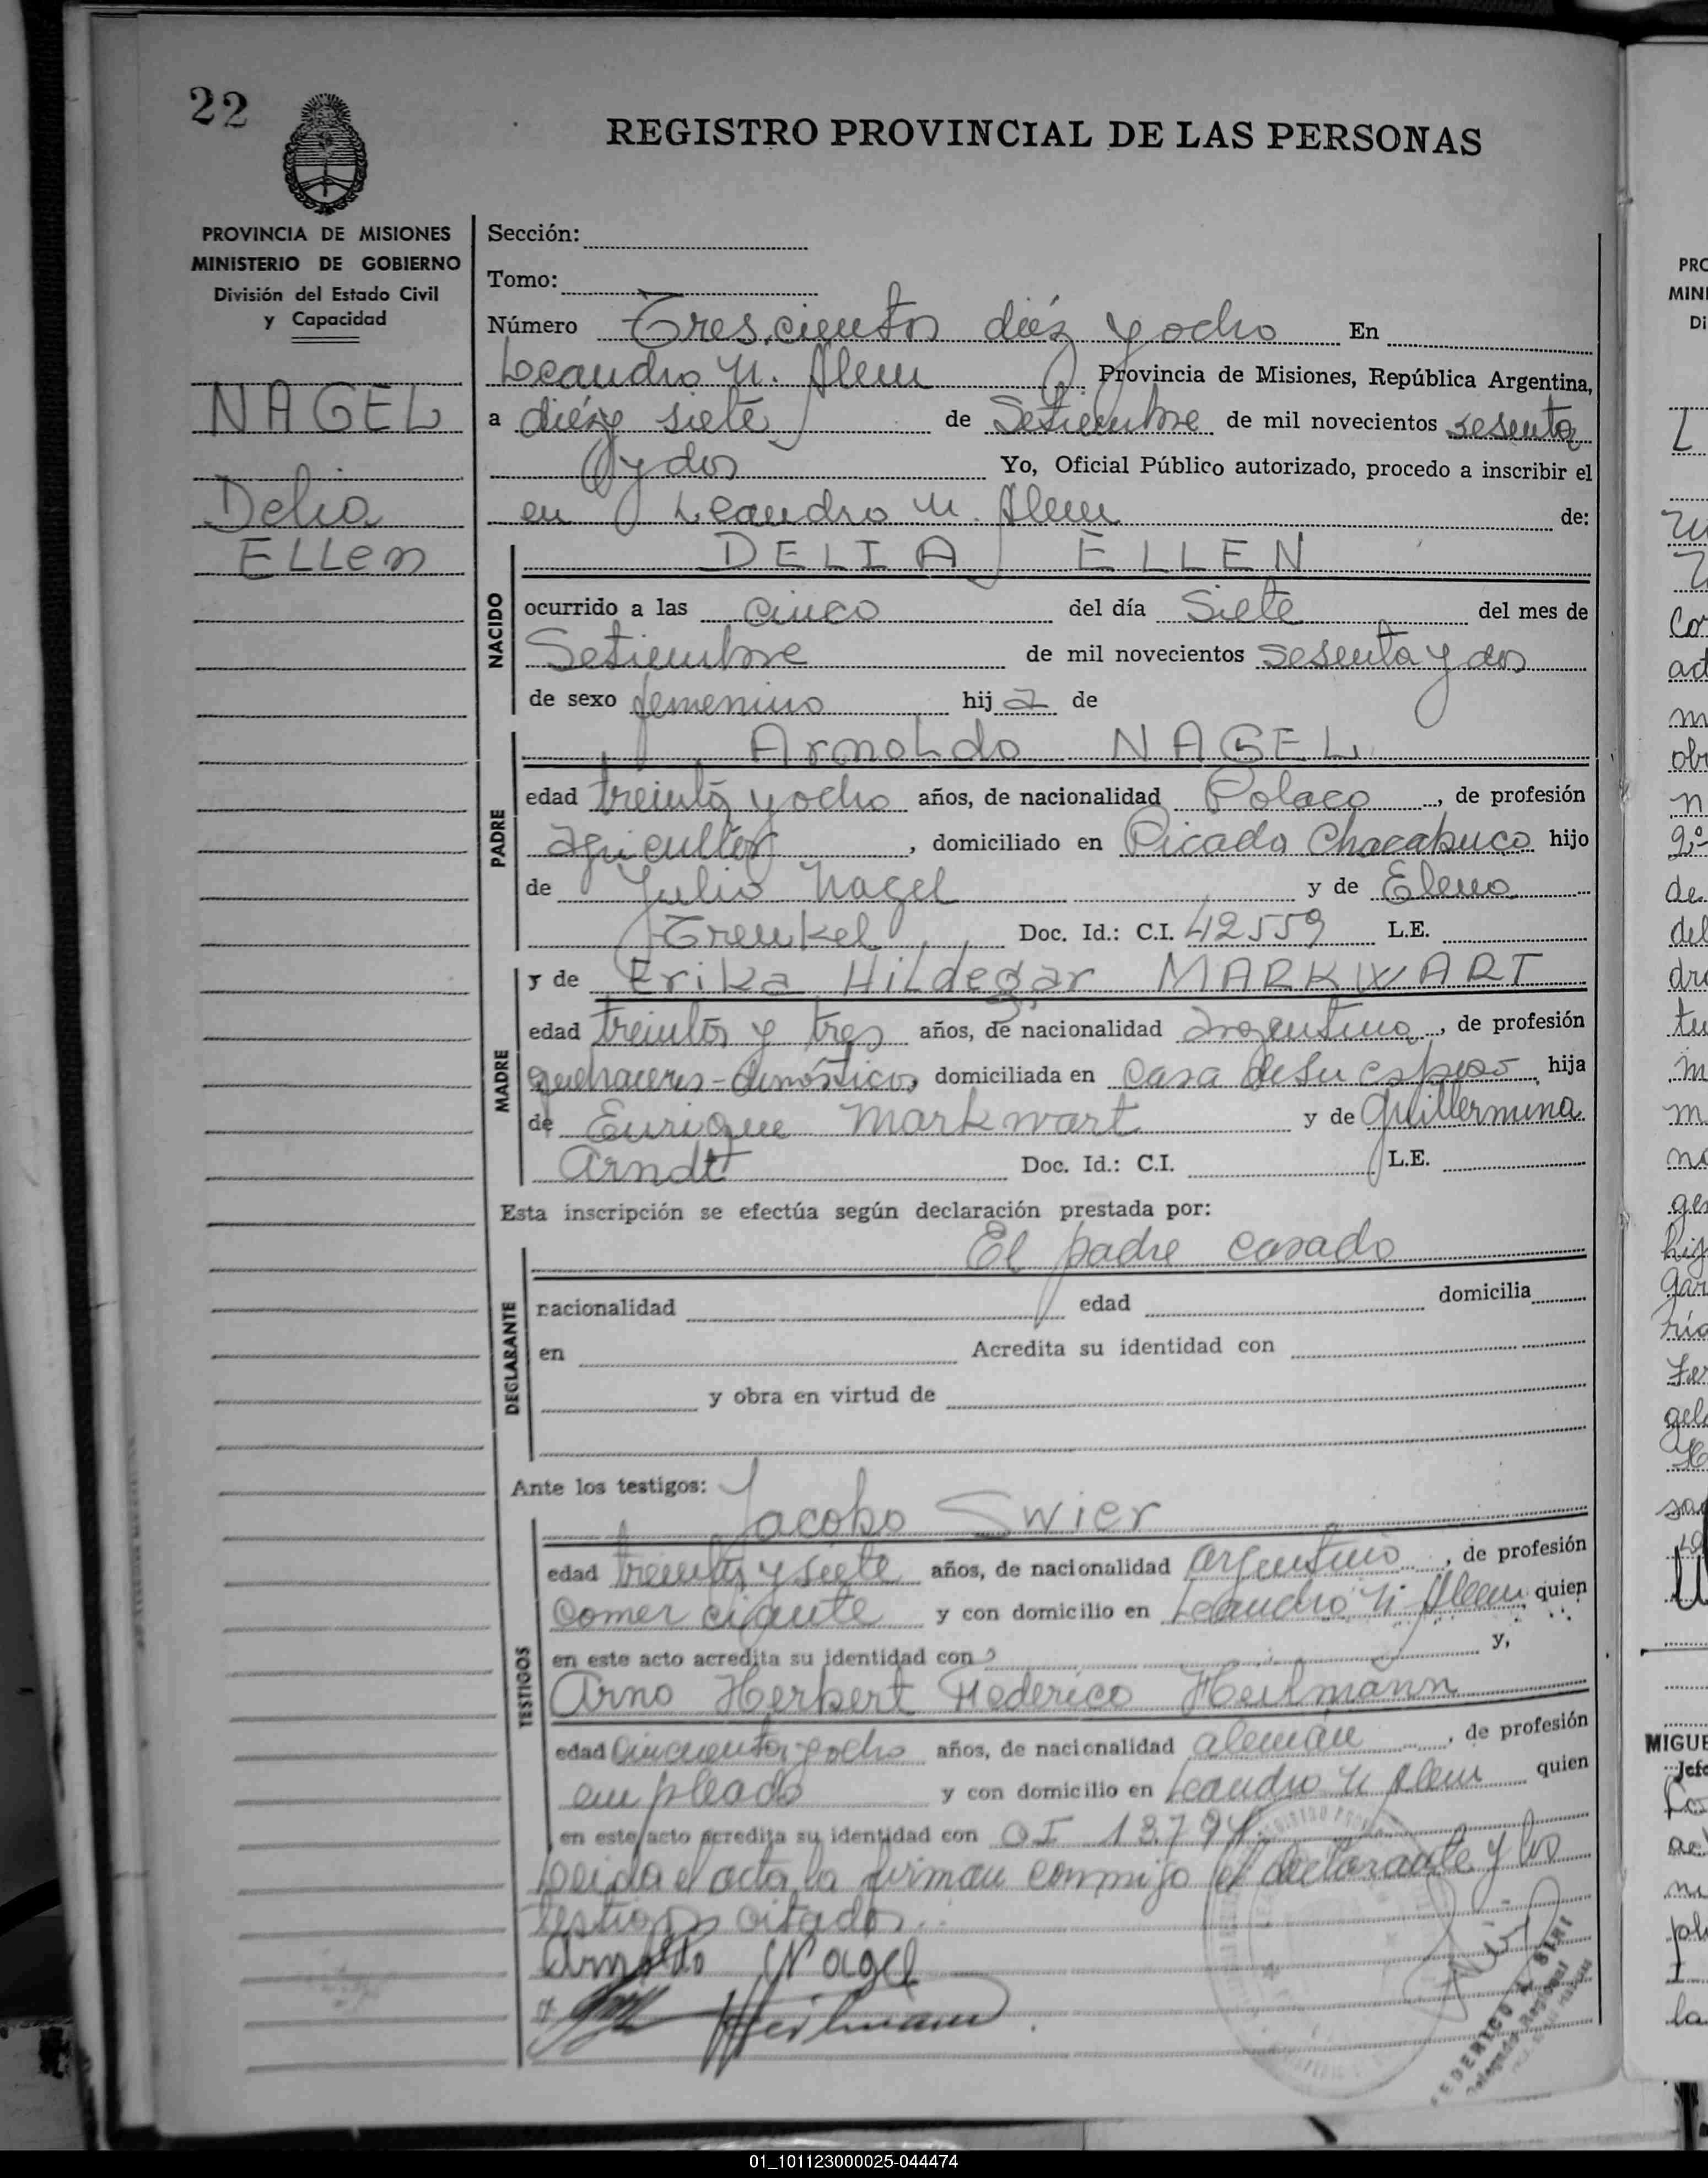 22
REGISTRO PROVINCIAL DE LAS PERSONAS
PROVINCIA DE MISIONES
MINISTERIO DE GOBIERNO
División del Estado Civil
y Capacidad
NAGEL
Delia
ELLen
Sección:
Tomo:
Número Trescientos diéz y ocho En
Leandro N. Alem Provincia de Misiones, República Argentina,
a diéz y siete de Setiembre de mil novecientos sesenta
y dos Yo, Oficial Público autorizado, procedo a inscribir el
en Leandro N. Alem de:
NACIDO
DELIA ELLEN
ocurrido a las cinco del día Siete del mes de
Setiembre de mil novecientos sesenta y dos
de sexo femenino hij a de
PADRE
ArnoLdo NAGEL
edad treinta y ocho años, de nacionalidad Polaco, de profesión
agricultor, domiciliado en Picada Chacabuco hijo
de Julio Nagel y de Elena
Trenkel Doc. Id.: C.I. 42559 L.E.
MADRE
y de Erika HiLdegar MARKWART
edad treinta y tres años, de nacionalidad argentina, de profesión
quehaceres-domésticos, domiciliada en casa de su esposo, hija
de Enrique Markwart y de Guillermina
Arndt Doc. Id.: C.I. L.E.
Esta inscripción se efectúa según declaración prestada por:
DECLARANTE
El padre casado
nacionalidad edad domicilia
en Acredita su identidad con
y obra en virtud de
Ante los testigos:
TESTIGOS
Jacobo Swier
edad treinta y siete años, de nacionalidad argentino, de profesión
comerciante y con domicilio en Leandro N. Alem, quien
en este acto acredita su identidad con y,
Arno Herbert Federico Heilmann
edad cincuenta y ocho años, de nacionalidad alemán, de profesión
empleado y con domicilio en Leandro N Alem quien
en este acto acredita su identidad con
Leida el acta, la firman conmigo el declarante y los
testigos citados.
Arnoldo Nagel
Heilmann
FEDERICO A. SIRI
Delegado Regional
PRO
MIN
Di
MIGUE
Jefe
01_101123000025-044474